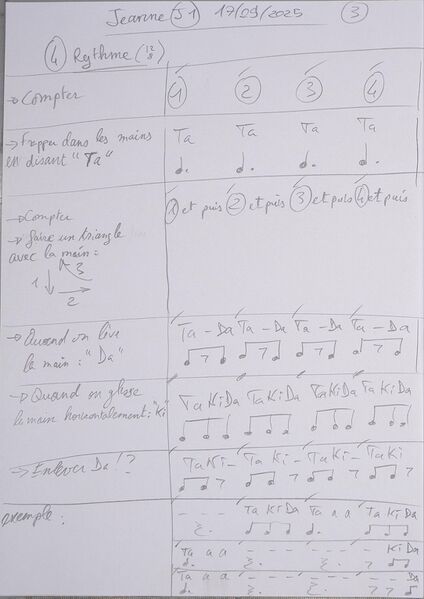 Jeanne J1 17/09/2025 3
4 Rythme (12/8)
→ Compter 1 2 3 4
→ Frapper dans les mains Ta Ta Ta Ta
en disant "Ta"
→ Compter 1 et puis 2 et puis 3 et puis 4 et puis
→ faire un triangle
avec la main :
1 3
2
→ Quand on lève Ta - Da Ta - Da Ta - Da Ta - Da
la main : "Da"
→ Quand on glisse Ta Ki Da Ta Ki Da Ta Ki Da Ta Ki Da
la main horizontalement : "Ki"
→ Enlever Da !? Ta Ki - Ta Ki - Ta Ki - Ta Ki
exemple : - - - Ta Ki Da Ta a a Ta Ki Da
Ta a a - - - - - - - Ki Da
Ta a a - - - - - - - - Da